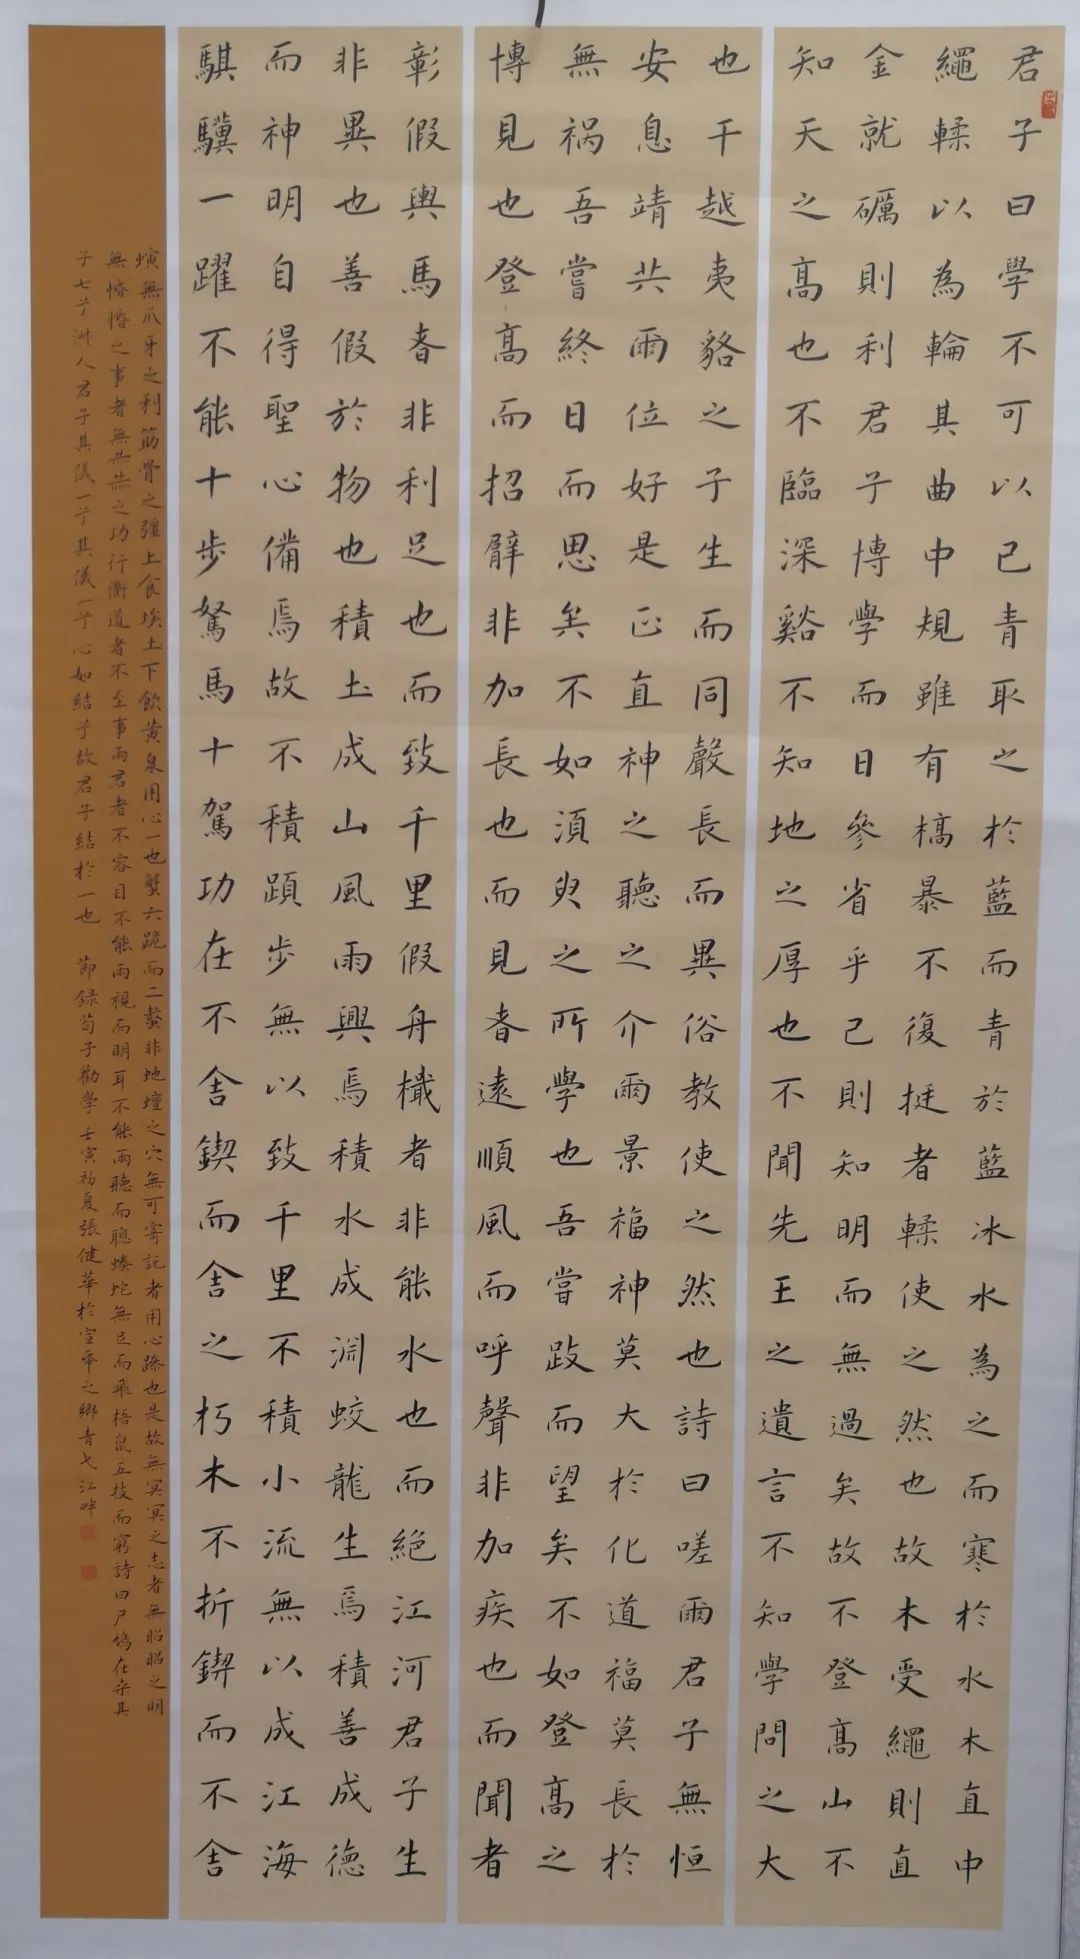 君子曰學不可以已青取之於藍而青於藍冰水為之而寒於水木直中
繩輮以為輪其曲中規雖有槁暴不復挺者輮使之然也故木受繩則直
金就礪則利君子博學而日參省乎己則知明而無過矣故不登高山不
知天之高也不臨深谿不知地之厚也不聞先王之遺言不知學問之大
也干越夷貉之子生而同聲長而異俗教使之然也詩曰嗟爾君子無恒
安息靖共爾位好是正直神之聽之介爾景福神莫大於化道福莫長於
無禍吾嘗終日而思矣不如須臾之所學也吾嘗跂而望矣不如登高之
博見也登高而招臂非加長也而見者遠順風而呼聲非加疾也而聞者
彰假輿馬者非利足也而致千里假舟檝者非能水也而絕江河君子生
非異也善假於物也積土成山風雨興焉積水成淵蛟龍生焉積善成德
而神明自得聖心備焉故不積蹞步無以致千里不積小流無以成江海
騏驥一躍不能十步駑馬十駕功在不舍鍥而舍之朽木不折鍥而不舍
螾無爪牙之利筋骨之彊上食埃土下飲黃泉用心一也蟹六跪而二螯非虵蟺之穴無可寄託者用心躁也是故無冥冥之志者無昭昭之明
無惛惛之事者無赫赫之功行衢道者不至事兩君者不容目不能兩視而明耳不能兩聽而聰螣蛇無足而飛梧鼠五技而窮詩曰尸鳩在桑其
子七兮淑人君子其儀一兮其儀一兮心如結兮故君子結於一也 節錄荀子勸學壬寅初夏張健華於宣筆之鄉青弋江畔